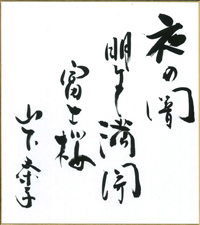 夜の闇
明るし満開
富士桜
山下奈子